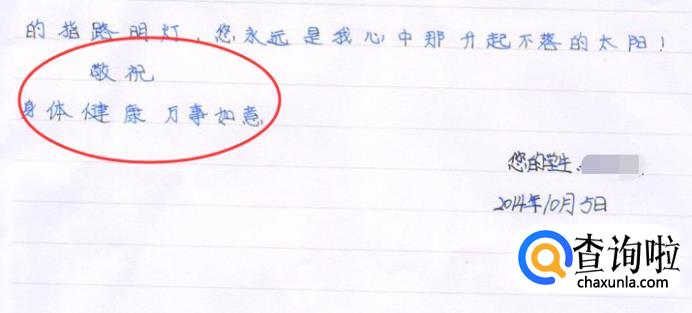 的指路明灯、您永远是我心中那升起不落的太阳！
敬祝
身体健康 万事如意
您的学生、
2014年10月5日
查询啦
chaxunla.com